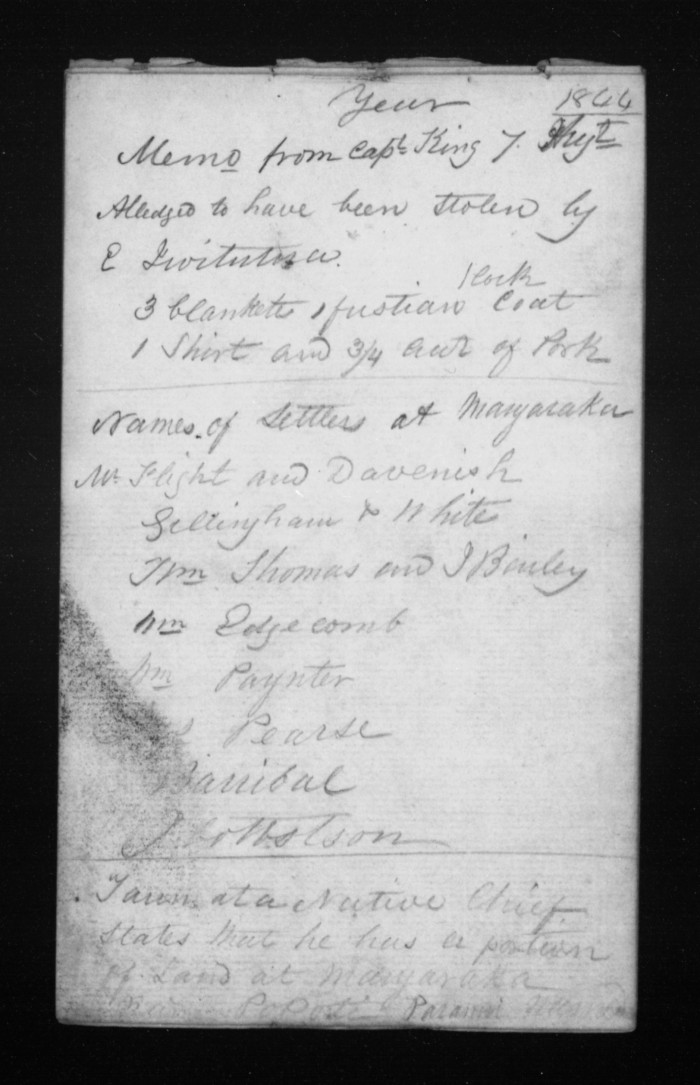 Year 1844
Memo from Capt King
Alledged to have been stolen by
E
1 Cock
3 blankets 1 fustian Coat
1 Shirt and 3/4 of Pork
Names of Settlers at Mangaraka
Mr Flight and Davenish
Gillingham & White
Wm Thomas and J Binley
Wm Edgecomb
Wm Paynter
Pearse
Hannibal
J
Taumata a Native Chief
states that he has a portion
of Land at Mangaraka